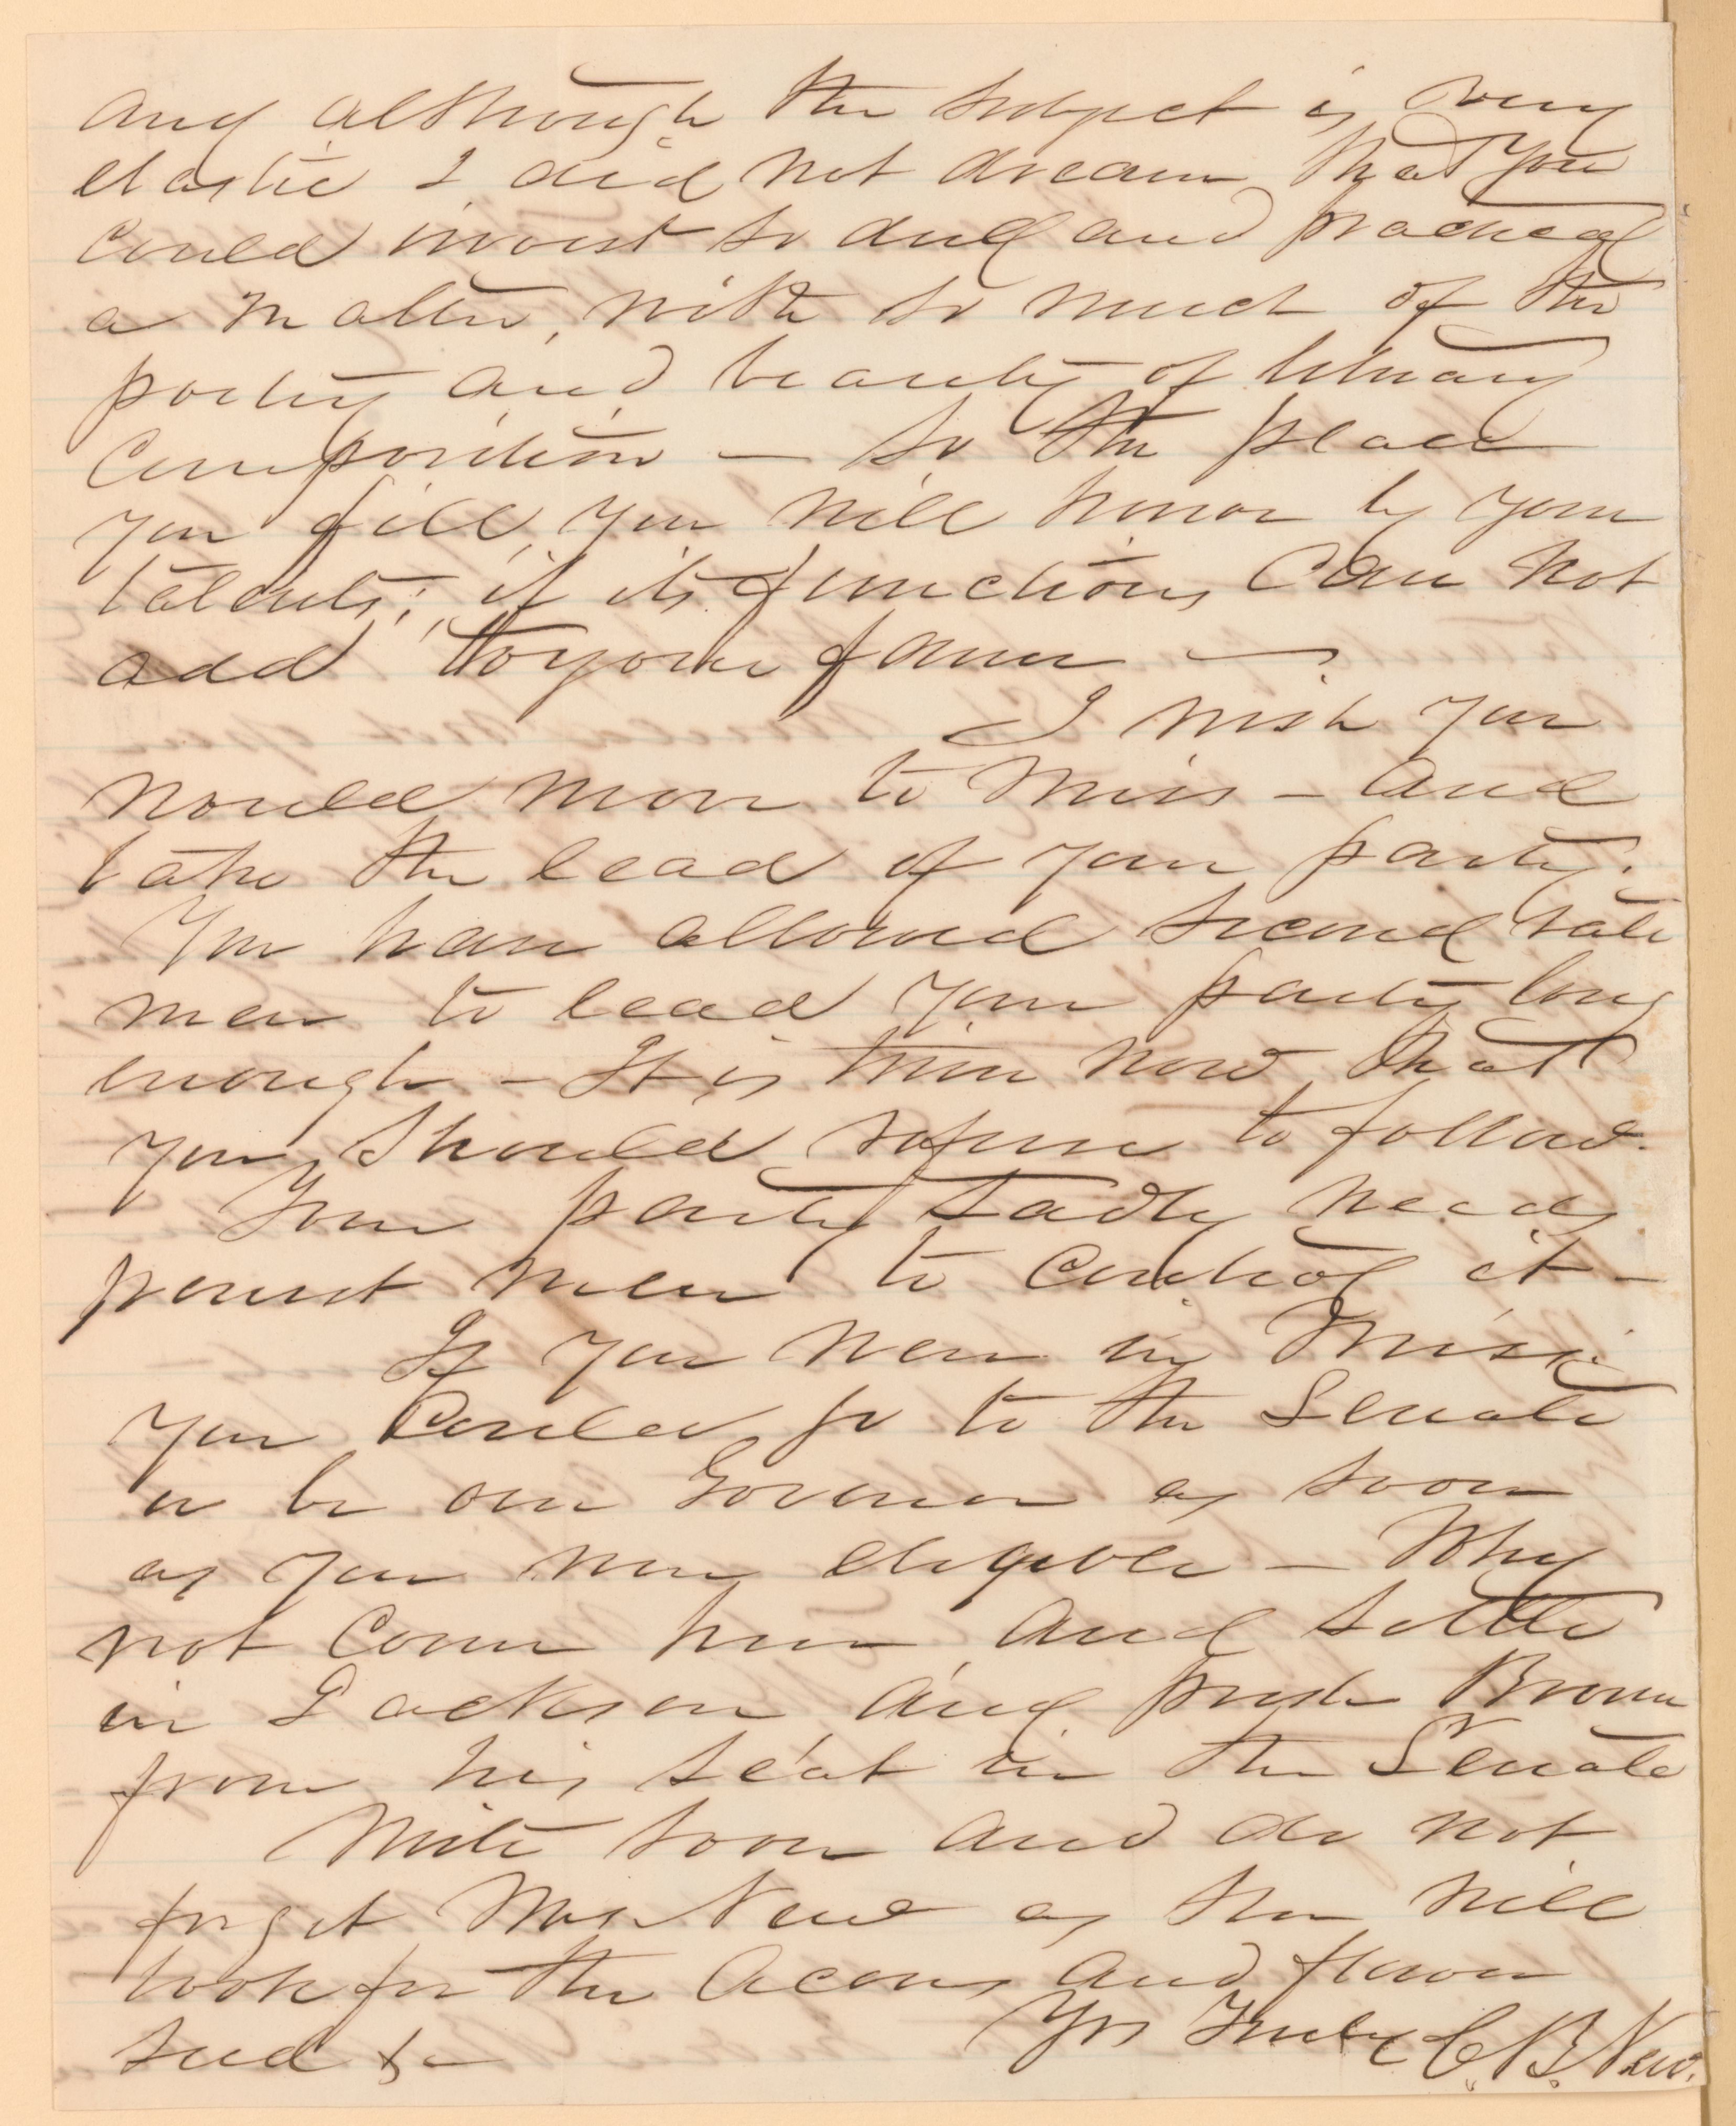 and although the subject is very
elastic I did not dream that you
could invest so dull and practical
a matter, with so much of the
poetry and beauty of literary
composition — so the place
you fill, you will honor by your
talents; if its functions can not
add to your fame —
I wish you
would move to Miss — and
take the lead of your party.
You have allowed second rate
men to lead your party long
enough — It is time now that
you should refuse to follow.
Your party sadly needs
honest men to control it —
If you were in Miss.
you could go to the Senate
or be our Governor as soon
as you were eligible — Why
not come here and settle
in Jackson and push Brown
from his seat in the Senate
Write soon and do not
forget Mrs New as she will
look for the acorns and flower
seed &c
Yrs Truly C. B. New.